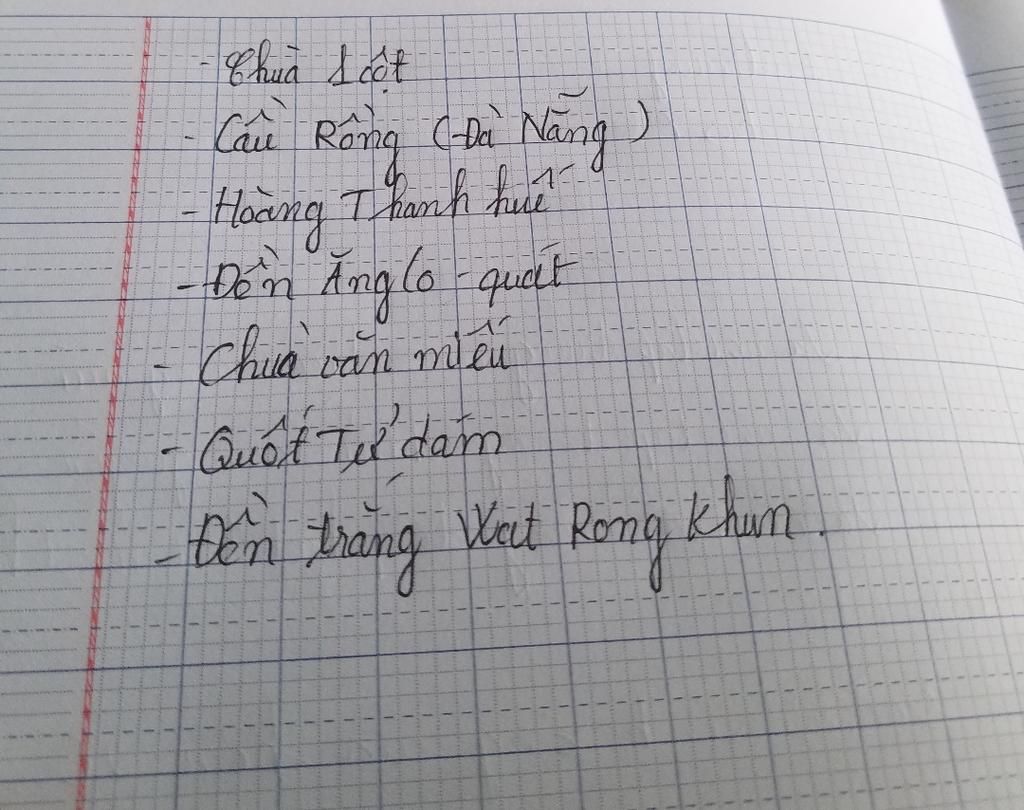 - Chùa 1 cột
- Cầu Rồng (Đà Nẵng)
- Hoàng Thành huế
- Đền Ăng co - quát
- Chùa văn miếu
- Quốc Tử dám
- Đền trắng Wat Rong Khun.